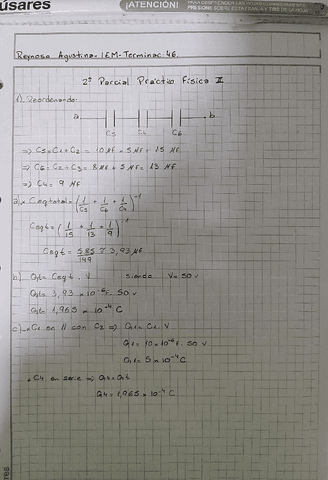 úsares
¡ATENCIÓN!
Reynoso Agustina - 1EM - Terminac: 46.
2º Parcial Práctico Física II
1) Reordenando:
a b
C5 C4 C6
=> C5 = C1 + C2 = 10 μF + 5 μF = 15 μF
=> C6 = C2 + C3 = 8 μF + 5 μF = 13 μF
=> C4 = 9 μF
a) * Ceq total = (1/C5 + 1/C6 + 1/C4)^-1
Ceq t = (1/15 + 1/13 + 1/9)^-1
Ceq t = 585/149 ≅ 3,93 μF
b) Qt = Ceq t . V siendo V = 50 v
Qt = 3,93 * 10^-6 F . 50 v
Qt = 1,965 * 10^-4 C
c) * C1 en // con C2 => Q1 = C1 . V
Q1 = 10 * 10^-6 F . 50 v
Q1 = 5 * 10^-4 C
* C4 en serie => Q4 = Qt
Q4 = 1,965 * 10^-4 C
res